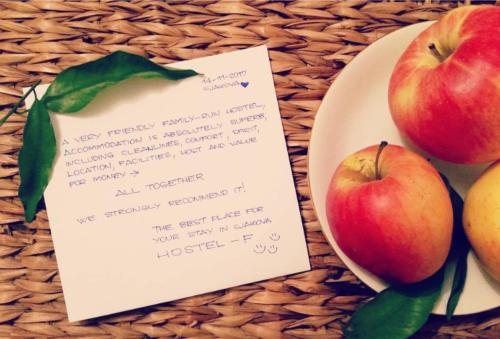 14-11-2017
GJAKOVA
A VERY FRIENDLY FAMILY-RUN HOSTEL,
ACCOMMODATION IS ABSOLUTELY SUPERB,
INCLUDING CLEANLINES, COMFORT, SPIRIT,
LOCATION, FACILITIES, HOST AND VALUE
FOR MONEY →
ALL TOGETHER
WE STRONGLY RECOMMEND IT!
THE BEST PLACE FOR
YOUR STAY IN GJAKOVA
HOSTEL - F